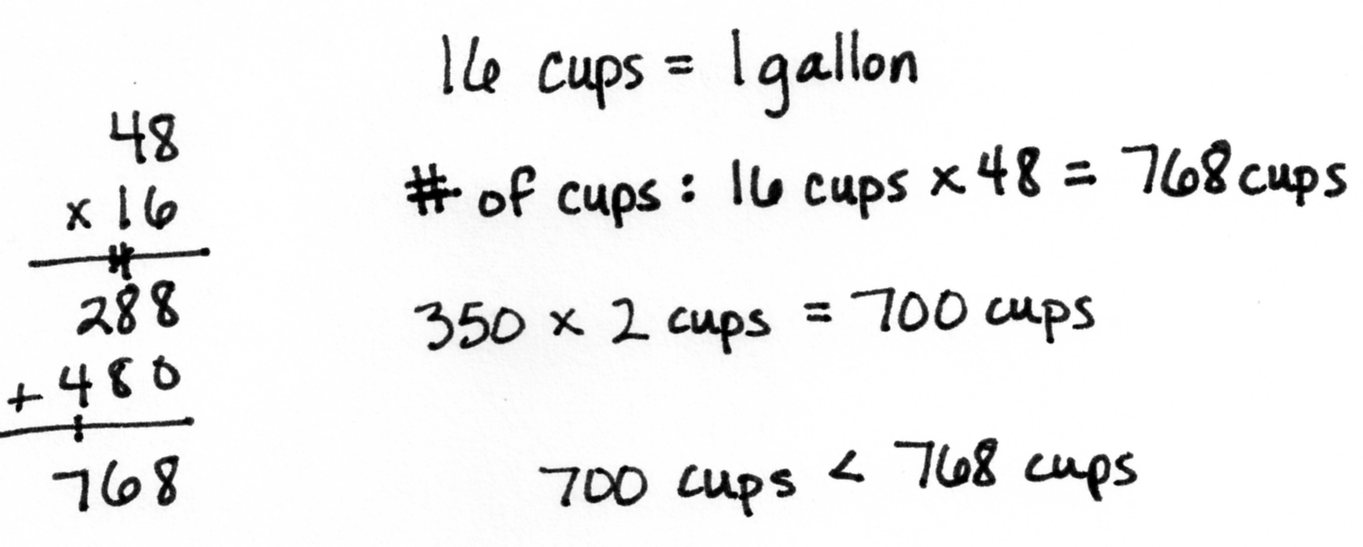 48
x 16
4
288
+ 480
1
768
16 cups = 1 gallon
# of cups : 16 cups x 48 = 768 cups
350 x 2 cups = 700 cups
700 cups < 768 cups